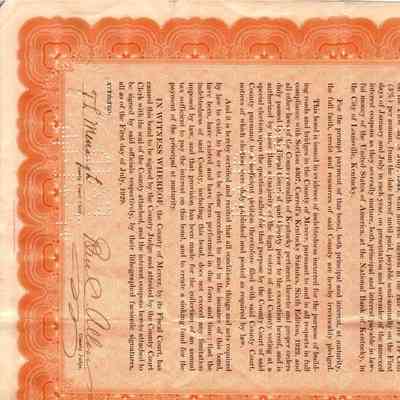 (5%) per annum, from the date hereof until paid, payable semi-annually on the First
days of January and July in each year, on presentation and surrender of the annexed
interest coupons as they severally mature, both principal and interest payable in law-
ful money of the United States of America, at the National Bank of Kentucky, in
the City of Louisville, Kentucky.
For the prompt payment of this bond, both principal and interest, at maturity,
the full faith, credit and resources of said County are hereby irrevocably pledged.
This bond is issued in evidence of indebtedness incurred for the purpose of build-
ing roads and bridges in the County of Mercer, pursuant to and in all respects in full
compliance with Section 4307, Carroll's Kentucky Statutes, Sixth Edition, 1922, and
all other laws of the Commonwealth of Kentucky pertinent thereto and proper orders
duly passed by the Fiscal Court of said County prior to the execution hereof, and is
authorized by more than a majority of the legal voters of said County voting at a
special election upon the question called for that purpose by the County Court of said
County pursuant to a petition therefor signed by
notice of which election was duly published and posted as required by law.
And it is hereby certified and recited that all conditions, things and acts required
by law to exist, to be or to be done precedent to and in the issuance of this bond,
have been, have existed and have been performed in due form and time; that the
indebtedness of said County, including this bond, does not exceed any limitation
imposed by law, and that provision has been made for the collection of an annual
tax sufficient to pay the interest on this bond, and to create a sinking fund for the
payment of the principal at maturity.
IN WITNESS WHEREOF the County of Mercer, by its Fiscal Court, has
caused this bond to be signed by the County Judge and attested by the County Court
Clerk with the seal of the County attached, and the interest coupons hereto attached to
be signed by said officials respectively, by their lithographed facsimile signatures,
all as of the First day of July, 1929.
ATTEST:
County Court Clerk.
County Judge.